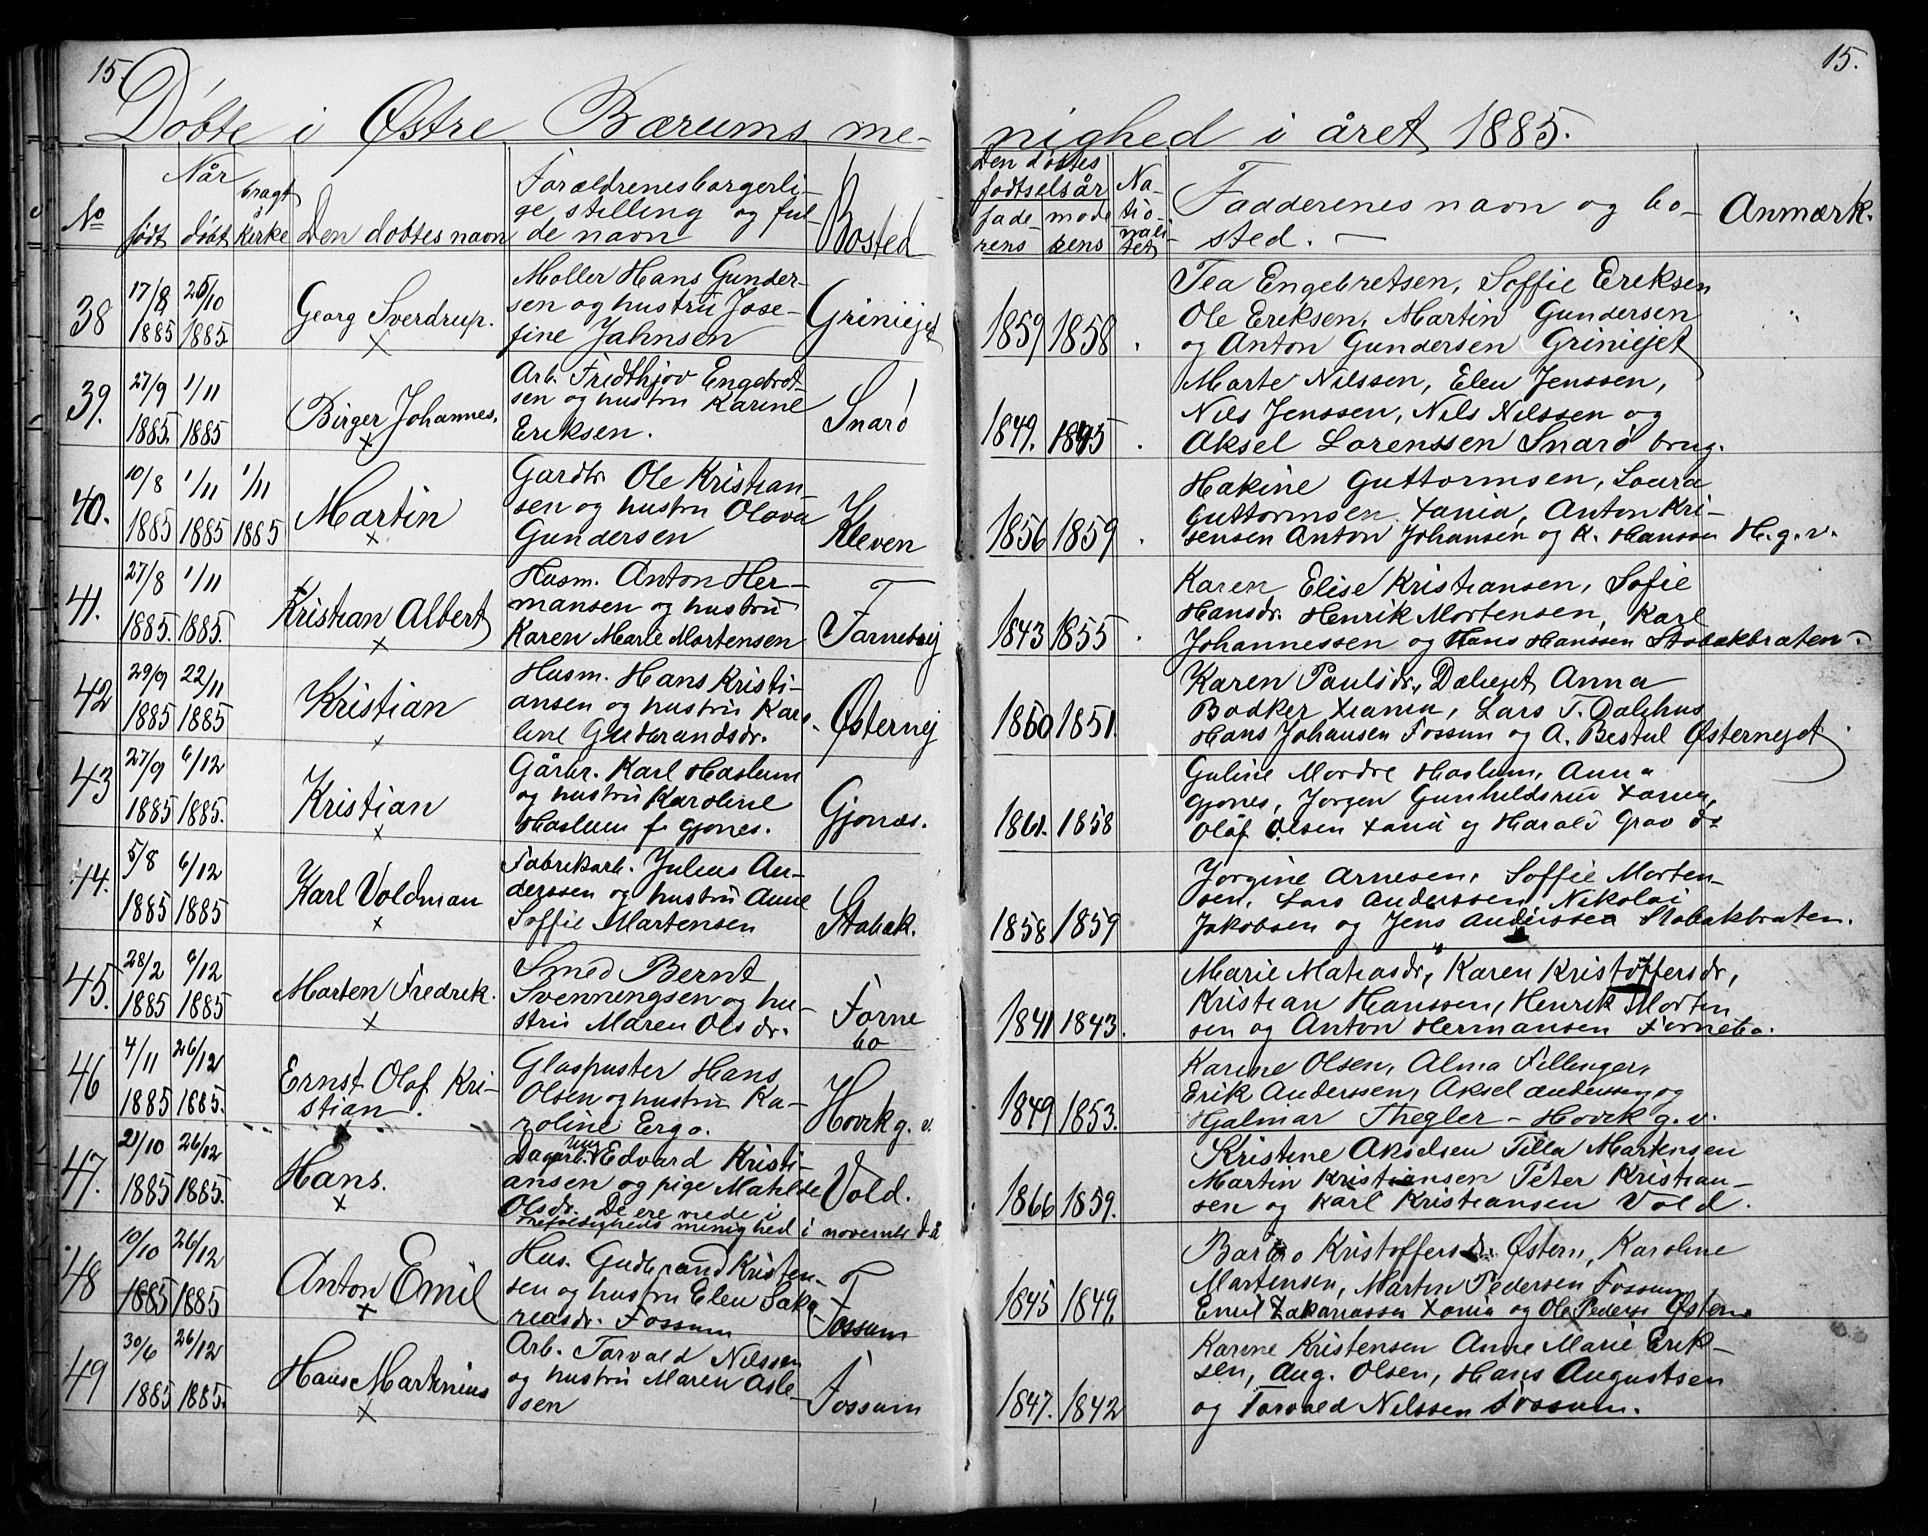 15.
15.
Døbte i Østre Bærums me-
nighed i året 1885.
No
Når
født
døbt
bragt
i kirke
Den døbtes navn
Forældrenes borgerli-
ge stilling og ful-
de navn
Bosted
Den døbtes
fødselsår
fade-
rens
mode
rens
Na-
tio-
nali-
tet
Fadderenes navn og bo-
sted. —
Anmærk.
38
17/8
1885
25/10
1885
Georg Sverdrup.
Møller Hans Gunder-
sen og hustru Jose-
fine Jahnsen
Griniejet
1859
1858
Tea Engebretsen, Soffie Eriksen
Ole Eriksen, Martin Gundersen
og Anton Gundersen Griniejet
39.
27/9
1885.
1/11
1885
Birger Johannes.
Arb. Fredthjov Engebret-
sen og hustru Karine
Eriksen.
Snarø
1849.
1845
Marte Nilssen, Elen Jenssen,
Nils Jenssen, Nils Nilssen og
Aksel Lorenssen Snarø brug.
40.
10/8
1885
1/11
1885
1/11
1885
Martin
Gardbr. Ole Kristian-
sen og hustru Olava
Gundersen
Kleven
1856
1859
Hakine Guttormsen, Laura
Guttormsen Xania, Anton Kri-
sensen Anton Johansen og K. Hanssen H. g. v.
41.
27/8
1885.
1/11
1885.
Kristian Albert
Husm. Anton Her-
mansen og hustru
Karen Marie Mortensen
Forneboej
1843
1855
Karen Elise Kristiansen, Sofie
Hansdr. Henrik Mortensen, Karl
Johannessen og Hans Hanssen Stabakbraten.
42
29/9
1885
22/11
1885
Kristian
Husm. Hans Kristi-
ansen og hustru Karo-
line Gudbrandsdr.
Østernej
1860
1851.
Karen Paulsdr., Dalejet Anna
Bødker Xania, Lars T. Dalihus
Hans Johansen Fossum og A. Bestul Østernejet
43
27/9
1885
6/12
1885.
Kristian
Gårbr. Karl Haslum
og hustru Karoline
Haslum f. Gjønes.
Gjønæs.
1861.
1858
Guline Mordre Haslum, Anna
Gjønes, Jørgen Gunhildsrud Xania,
Olaf Olsen Xania og Harald Grav
44.
5/8
1885
6/12
1885
Karl Voldman
Fabrikarb. Julius An-
derssen og hustru Anne
Soffie Martensen
Stabak.
1858
1859
Jørgine Arnesen, Soffie Morten-
sen, Lars Anderssen, Nikolai
Jakobsen og Jens Anderssen Stabakbraten.
45.
28/2
1885
6/12
1885
Morten Fredrik.
Smed Bernt
Svenningsen og hu-
stru Maren Olsdr.
Forne
bo
1841
1843.
Marie Matiasdr., Karen Kristoffersdr,
Kristian Hanssen, Henrik Morten
sen og Anton Hermansen Fornebo.
46
4/11
1885
26/12
1885.
Ernst Olaf Kri-
stian.
Glaspuster Hans
Olsen og hustru Ka-
roline Ergo.
Høvik g. v.
1849
1853.
Karine Olsen, Alma Fillinger,
Erik Anderssen, Aksel Anderssen og
Hjalmar Thegler - Høvik g. v.
47.
21/10
1885
26/12
1885.
Hans.
Dagarb. Edvard Kristi-
ansen og pige Matilde
Olsdr. De ere viede i
Trefoldigheds menighed i novembr
Vold.
1866
1859.
Kristine Akselsen Tilla Martensen
Martin Kristiansen Peter Kristian-
sen og Karl Kristiansen Vold.
48
10/10
1885
26/12
1885
Anton Emil
Hus. Gudbrand Kristen-
sen og hustru Elen Saka-
riasdr. Fossum
Fossum
1845
1849.
Barbro Kristoffersdr. Østern, Karoline
Martensen, Martin Pedersen Fossum
Emil Zakariassen Xania og Ole Pederse Østern.
49
30/6
1885
26/12
1885.
Hans Martinius
Arb. Torvald Nilssen
og hustru Maren Asle-
sen
Fossum
1847.
1842
Karine Kristensen Anne Marie Erik-
sen, Aug. Olsen, Hans Augustsen
og Torvald Nilssen Fossum.